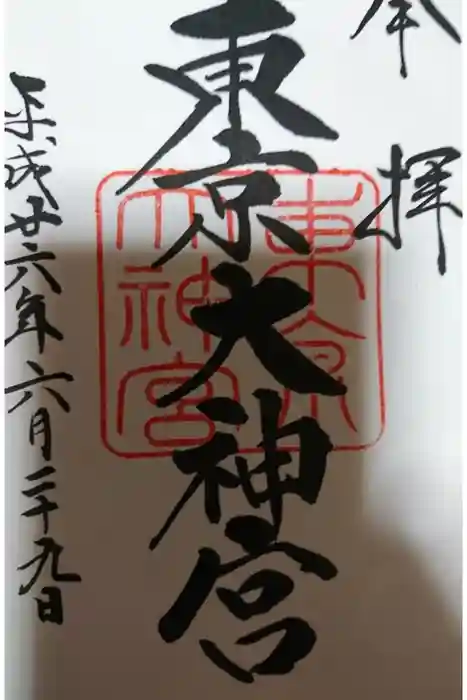 奉拝
東京大神宮
東京大神宮
平成廿六年六月二十九日